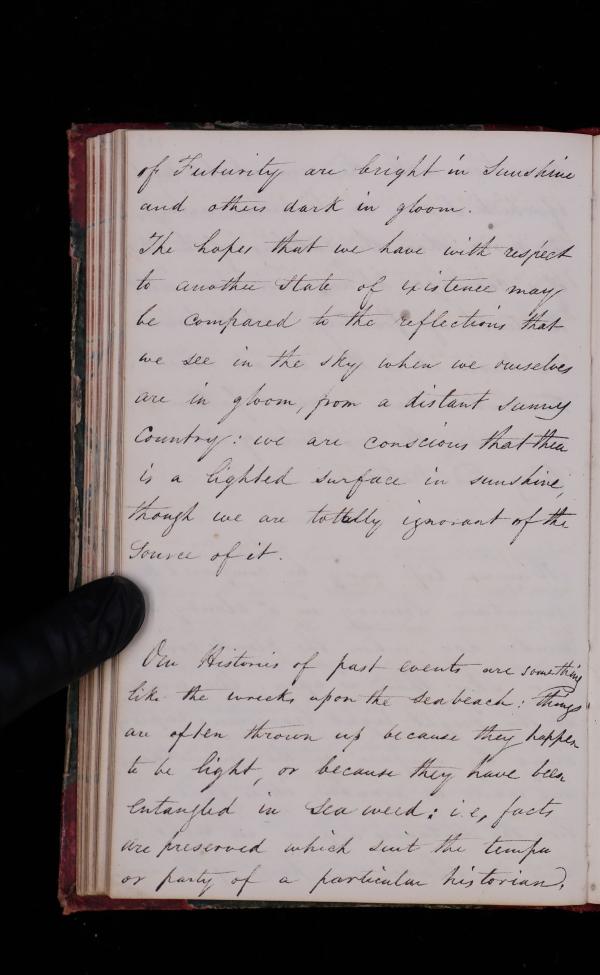 of Futurity are bright in Sunshine
and others dark in gloom.
The hopes that we have with respect
to another State of existence may
be compared to the reflections that
we see in the sky when we ourselves
are in gloom, from a distant sunny
Country: we are conscious that there
is a lighted surface in sunshine,
though we are totally ignorant of the
Source of it.
Our Histories of past events are something
like the wrecks upon the sea beach: things
are often thrown up because they happen
to be light, or because they have been
entangled in sea weed: i.e, facts
are preserved which suit the temper
or party of a particular historian.